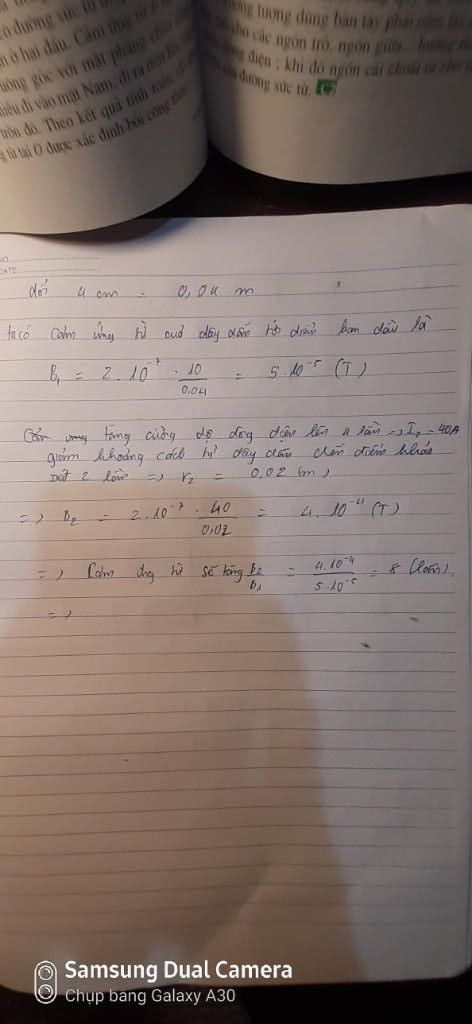 đường sức từ
n ở hai đầu. Cảm ứng từ
uông góc với mặt phẳng chứa
hiều đi vào mặt Nam, đi ra mặt
tròn đó. Theo kết quả tính toán,
g từ tại O được xác định bởi công thức
tượng dùng bàn tay phải nắm
cho các ngón trỏ, ngón giữa... hướng
điện ; khi đó ngón cái choãi ra
đường sức từ.
NO
DATE
đổi 4 cm = 0,04 m
ta có Cảm ứng từ dây dẫn tới điểm ban đầu là
B₁ = 2.10⁻⁷ . 10/0,04 = 5.10⁻⁵ (T)
tăng cường độ dòng điện lên 4 lần => I₂ = 40A
giảm khoảng cách từ dây dẫn đến điểm khảo
sát 2 lần => r₂ = 0,02 (m)
=> B₂ = 2.10⁻⁷ . 40/0,02 = 4.10⁻⁴ (T)
=> Cảm ứng từ sẽ tăng B₂/B₁ = 4.10⁻⁴/5.10⁻⁵ = 8 (lần).
=>
Samsung Dual Camera
Chụp bằng Galaxy A30